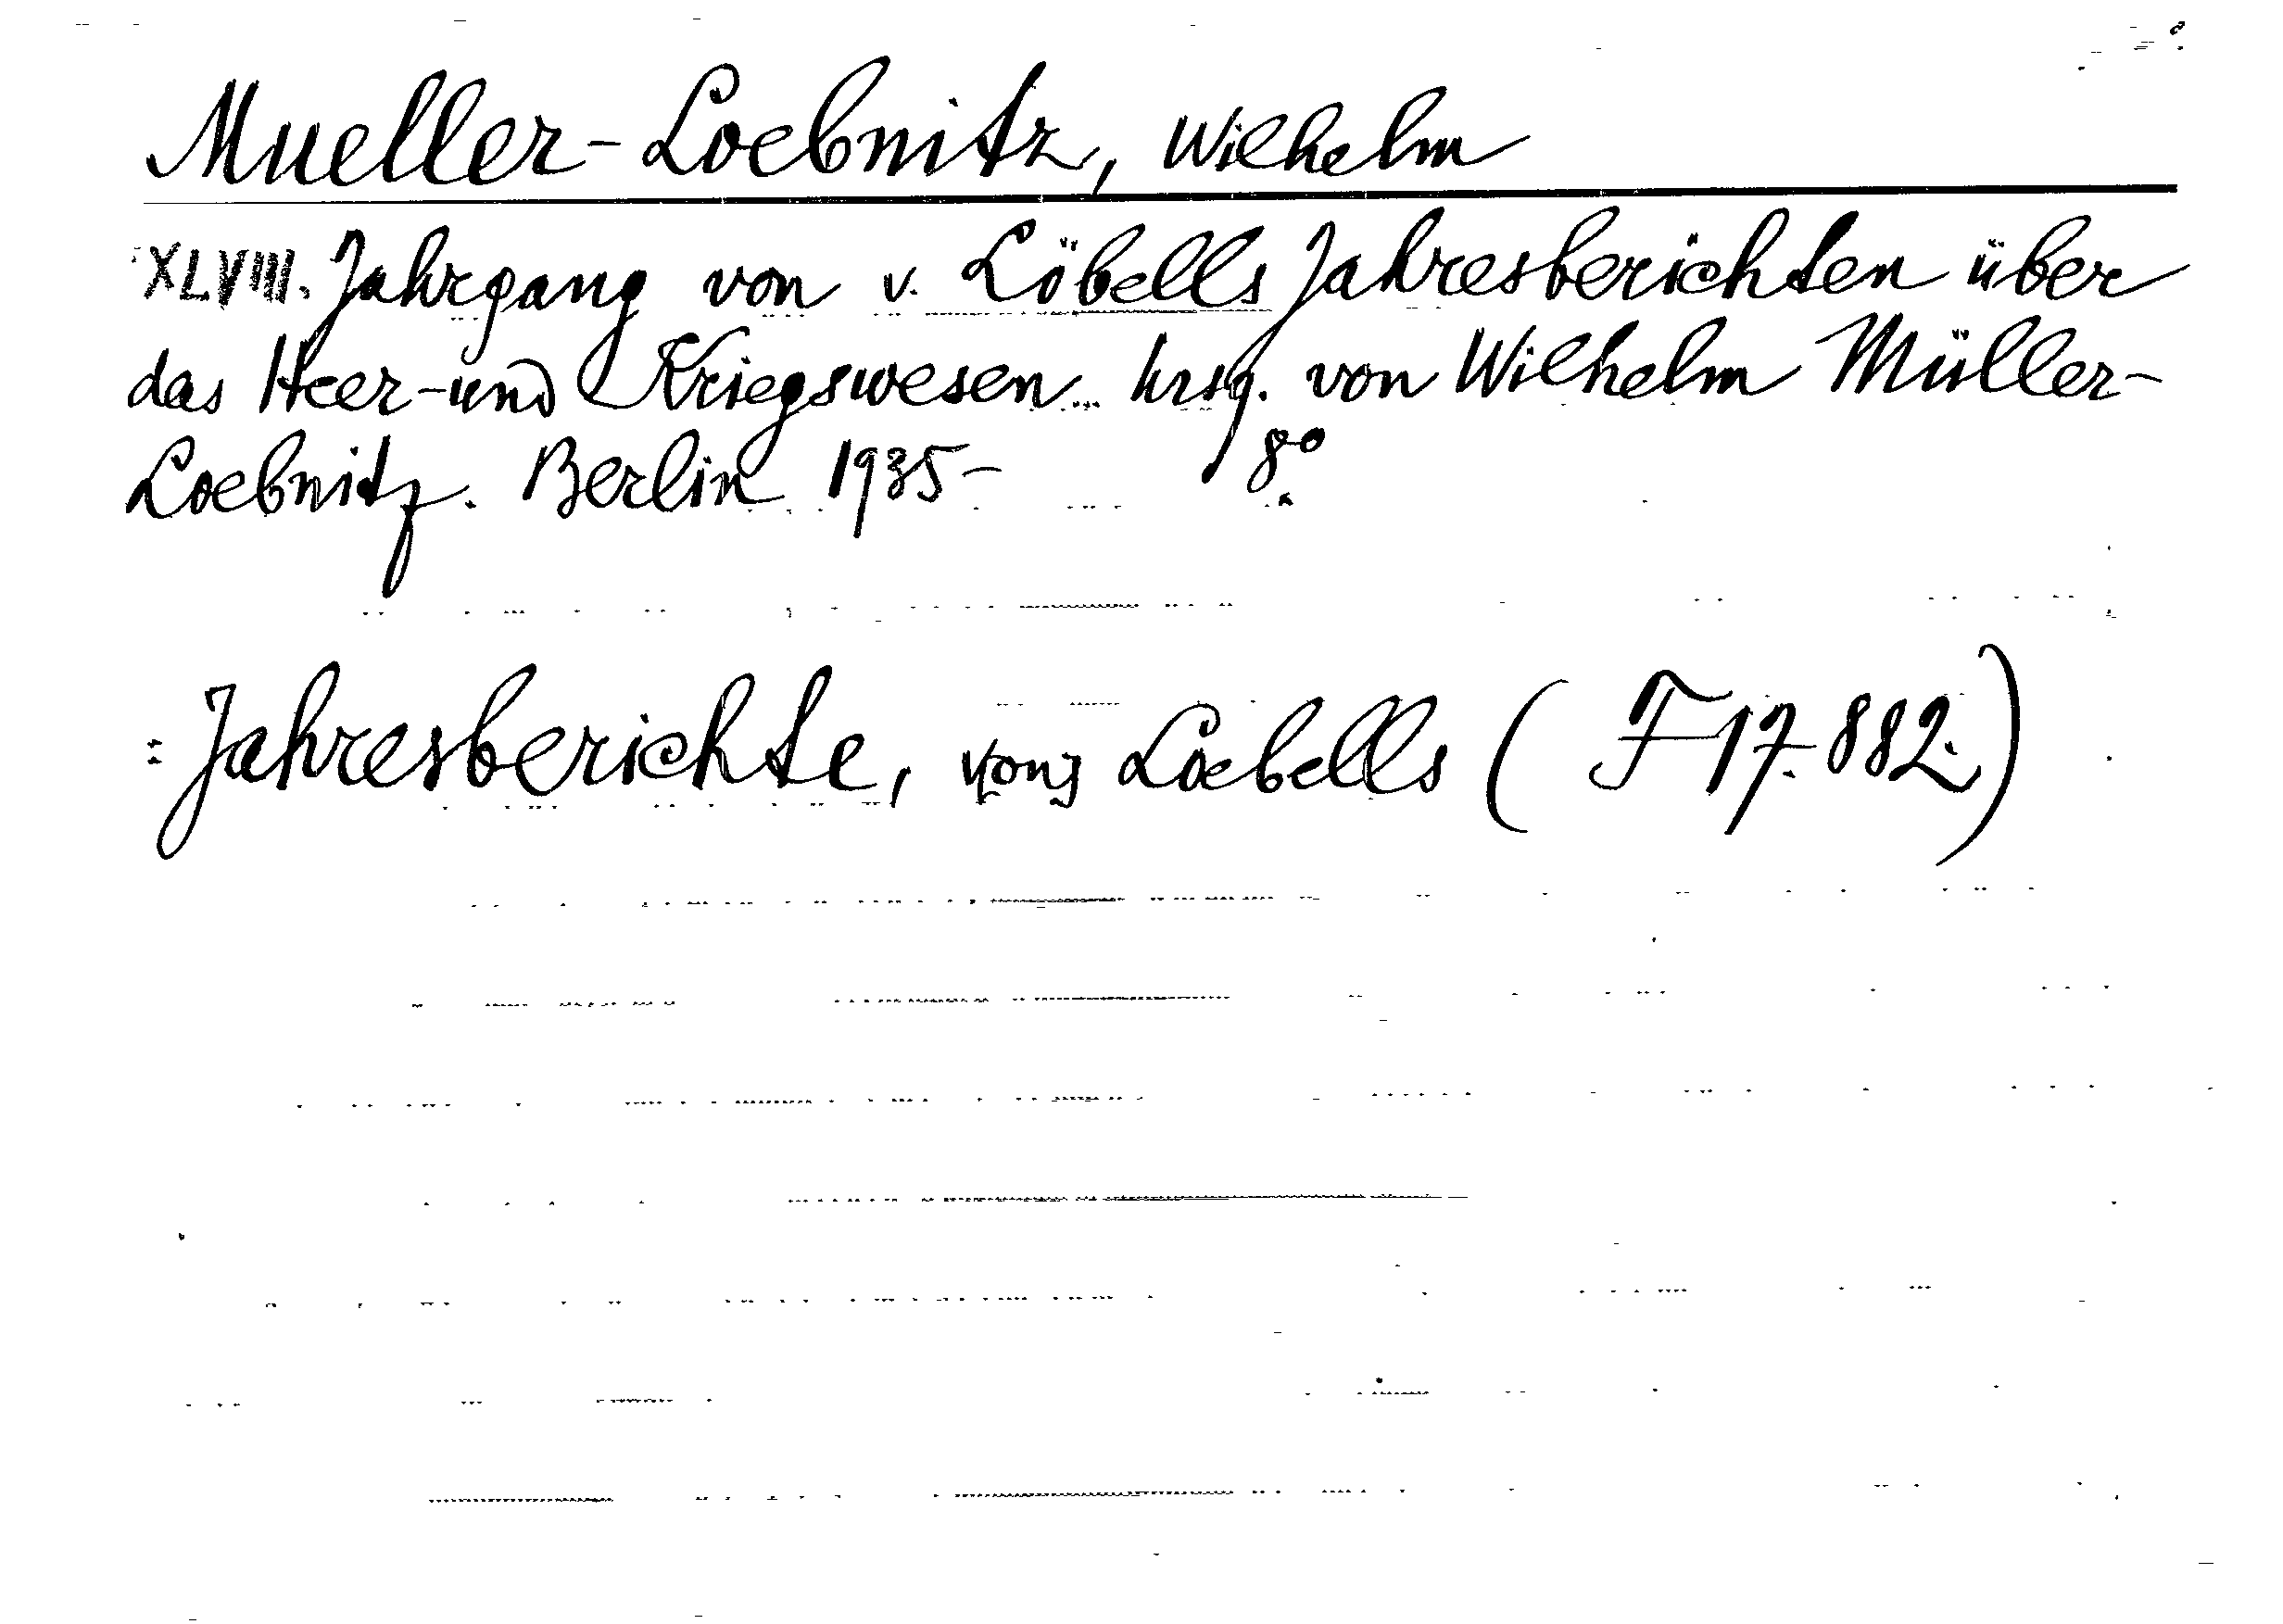 Mueller-Loebnitz, Wilhelm
XLVIII. Jahrgang von v. Löbells Jahresberichten über
das Heer- und Kriegswesen hrsg. von Wilhelm Müller-
Loebnitz. Berlin 1935- 8°
= Jahresberichte, von Loebells ( F 17.882.)